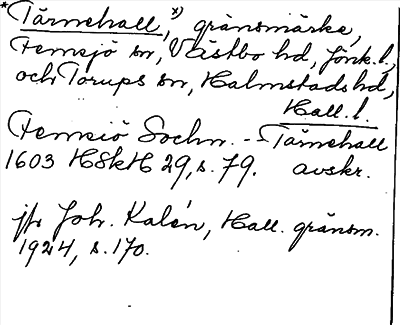 *Tärnehall,*) gränsmärke,
Femsjö sn, Västbo hd, Jönk. l.,
och Torups sn, Halmstads hd,
Hall. l.
Femsiö Sochn. -- Tärnehall
1603 HSkH 29, s. 79. avskr.
jfr Joh. Kalén, Hall. gränsm.
1924, s. 170.